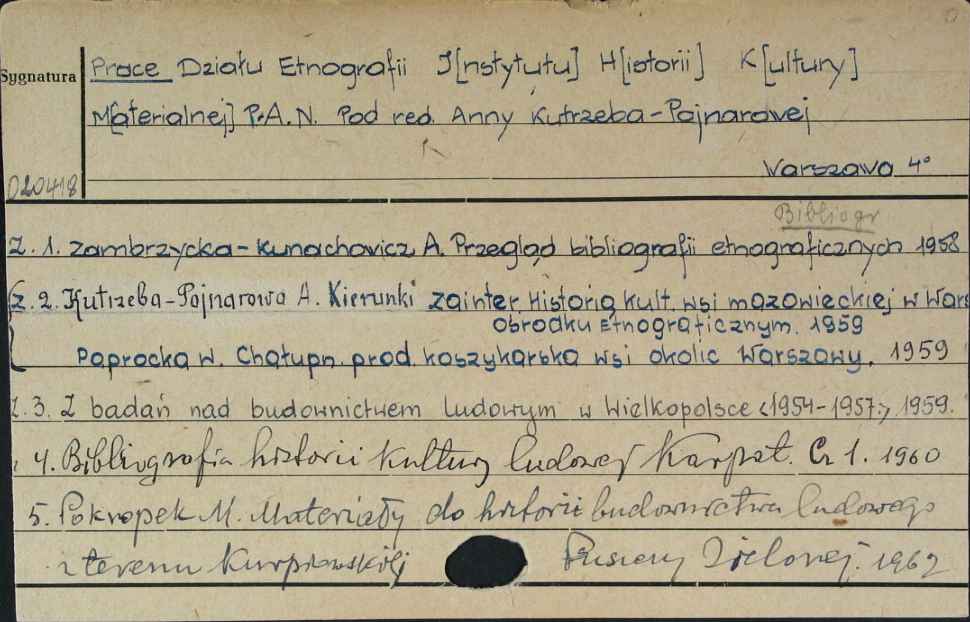 Sygnatura
Prace Działu Etnografii I[nstytutu] H[istorii] K[ultury]
M[aterialnej] P.A.N. Pod red. Anny Kutrzeba-Pojnarowej
Warszawa 4°
020418
Bibliogr
Z. 1. Zambrzycka-Kunachowicz A. Przegląd bibliografii etnograficznych 1958
Z. 2. Kutrzeba-Pojnarowa A. Kierunki zainter. Historią kult. wsi mazowieckiej w Wars
Ośrodku Etnograficznym. 1959
Paprocka W. Chałupn. prod. koszykarska wsi okolic Warszawy. 1959
Z. 3. Z badań nad budownictwem ludowym w Wielkopolsce <1954-1957>, 1959.
4. Bibliografia historii kultury ludowej Karpat. Cz 1. 1960
5. Pokropek M. Materiały do historii budownictwa ludowego
z terenu Kurpiowskiej Puszczy Zielonej. 1962